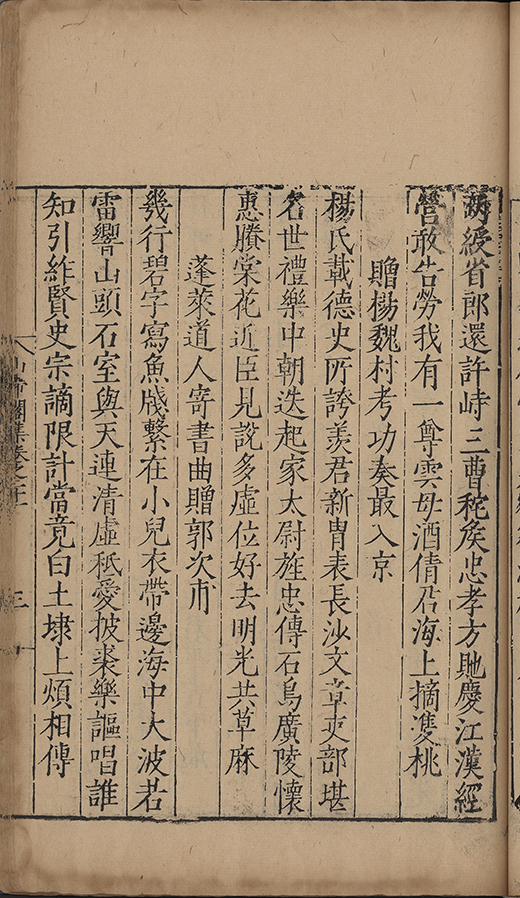 綬省郎還許峙三曹秺矦忠孝方貤慶江漢經
營敢告勞我有一尊雲母酒倩君海上摘雙桃
贈楊魏村考功奏最入京
楊氏載德史所誇羨君新胄表長沙文章吏部堪
名世禮樂中朝迭起家太尉旌忠傳石鳥廣陵懷
惠賸棠花近臣見說多虛位好去明光共草麻
蓬萊道人寄書曲贈郭次甫
幾行碧字寫魚牋繫在小兒衣帶邊海中大波若
雷響山頭石室與天連清虛秪愛披裘樂謳唱誰
知引緯賢史宗謫限計當竟白土埭上煩相傳
集卷之
三